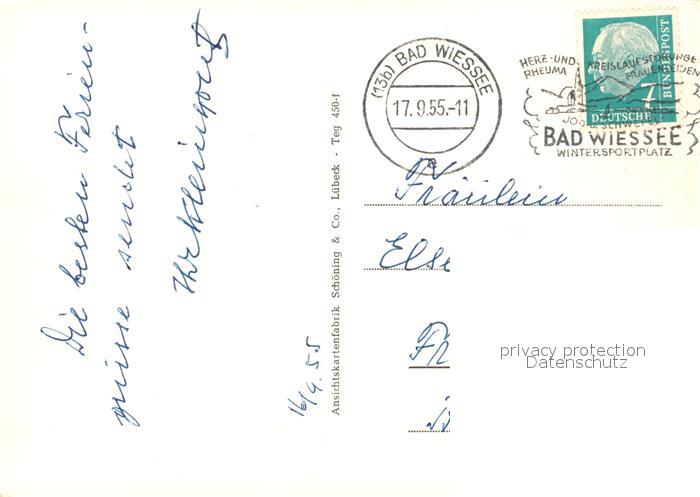 Die besten Ferien-
grüsse sendet
16/9.55
Ansichtskartenfabrik Schöning & Co., Lübeck - Teg 450-f
(13b) BAD WIESSEE
17.9.55.-11
a
HERZ- UND KREISLAUFSTÖRUNGE
RHEUMA FRAUENLEIDEN
JOD- U. SCHWEFEL
BAD WIESSEE
WINTERSPORTPLATZ
7
DEUTSCHE
BUNDESPOST
Fräulein
Else
privacy protection
Datenschutz